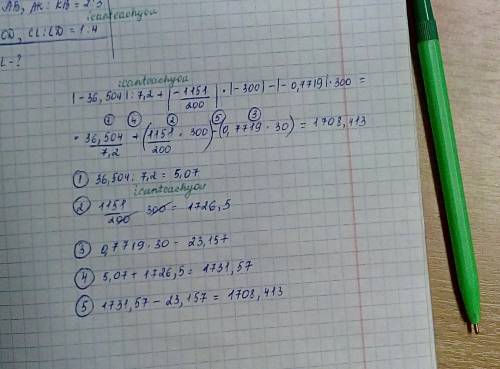 AB, AK : KB = 2:3
icanteachyou
CD, CL : LD = 1:4
L - ?
icanteachyou
|-36,504| : 7,2 + |-1151/200| · |-300| - |-0,7719| · 300 =
① ④ ② ⑤ ③
= 36,504/7,2 + (1151/200 · 300) - (0,7719 · 30) = 1708,413
① 36,504 : 7,2 = 5,07
icanteachyou
② 1151/200 · 300 = 1726,5
③ 0,7719 · 30 = 23,157
④ 5,07 + 1726,5 = 1731,57
⑤ 1731,57 - 23,157 = 1708,413